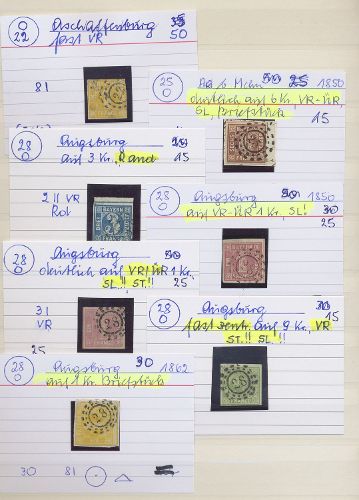 22
0
Aschaffenburg 35
fast VR 50
81
25
0
6 Mchn 50 25 1850
deutlich auf 6 Kr, VR-ÜR,
SL, Briefstück 15
28
0
Augsburg 50
auf 3 Kr, Rand 15
2 II VR
Rot
BAYERN
28
0
Augsburg 50 1850
auf VR-ÜR 1 Kr. SL! 30
25
28
0
Augsburg 50
deutlich auf VR!ÜR 1 Kr.
SL!! ST!! 25
31
VR
25
28
0
Augsburg 30
fast zentr. auf 9 Kr, VR 15
ST.!! SL!!
28
0
Augsburg 30 1862
auf 1 Kr. Briefstück
28
28
30 81